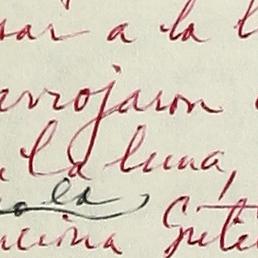 sar a la l
arrojaron
a la luna,
ola,
unciona Grite